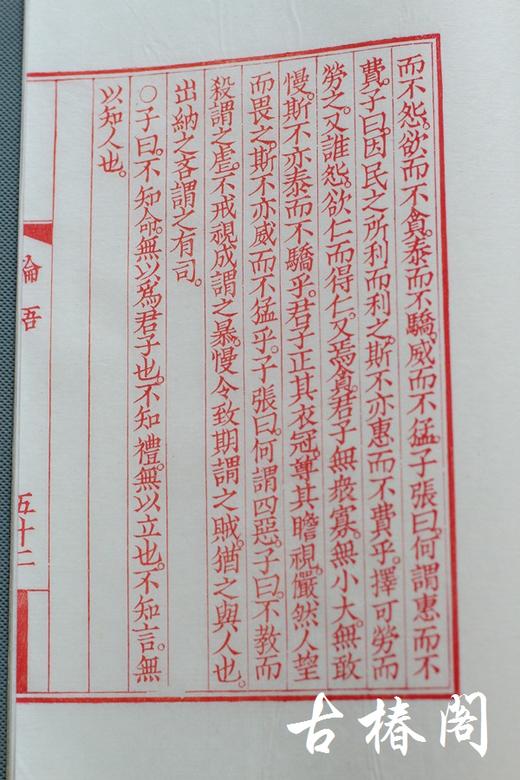 而不怨。欲而不貪。泰而不驕。威而不猛。子張曰。何謂惠而不
費。子曰。因民之所利而利之。斯不亦惠而不費乎。擇可勞而
勞之。又誰怨。欲仁而得仁。又焉貪。君子無衆寡。無小大。無敢
慢。斯不亦泰而不驕乎。君子正其衣冠。尊其瞻視。儼然人望
而畏之。斯不亦威而不猛乎。子張曰。何謂四惡。子曰。不教而
殺謂之虐。不戒視成謂之暴。慢令致期謂之賊。猶之與人也。
出納之吝謂之有司。
○子曰。不知命。無以爲君子也。不知禮。無以立也。不知言。無
以知人也。
五十二
古椿閣